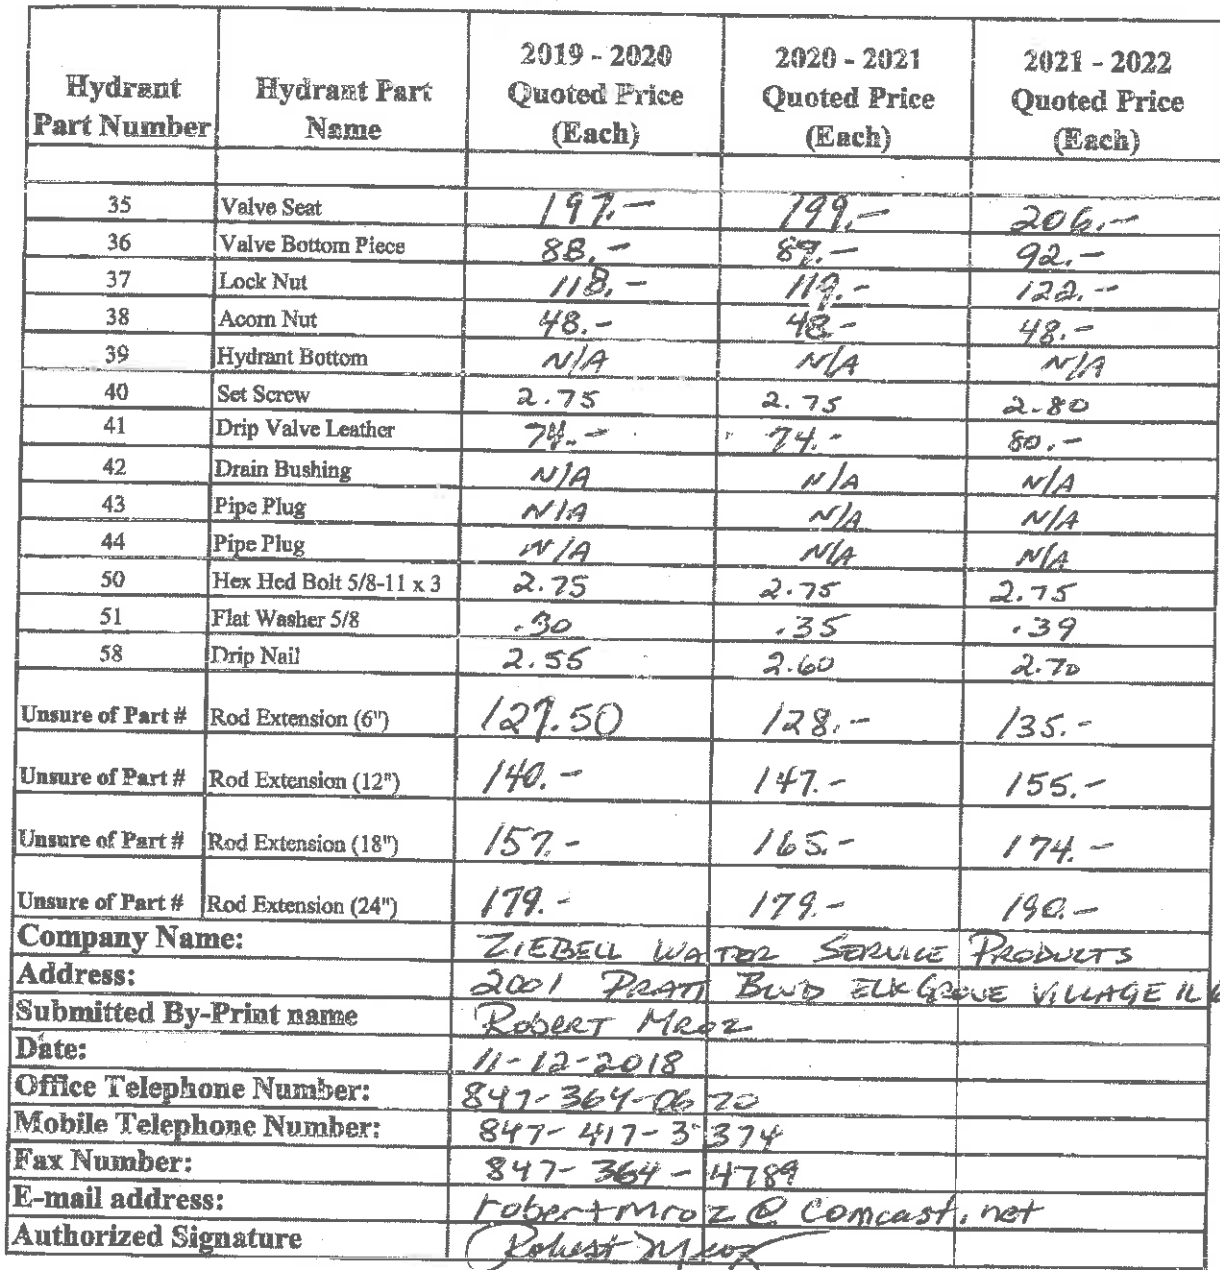 Hydrant Part Number | Hydrant Part Name | 2019 - 2020 Quoted Price (Each) | 2020 - 2021 Quoted Price (Each) | 2021 - 2022 Quoted Price (Each)
35 Valve Seat 197.- 199.- 206.-
36 Valve Bottom Piece 88.- 89.- 92.-
37 Lock Nut 118.- 119.- 122.-
38 Acorn Nut 48.- 48- 48.-
39 Hydrant Bottom N/A N/A N/A
40 Set Screw 2.75 2.75 2.80
41 Drip Valve Leather 74.- 74.- 80.-
42 Drain Bushing N/A N/A N/A
43 Pipe Plug N/A N/A N/A
44 Pipe Plug N/A N/A N/A
50 Hex Hed Bolt 5/8-11 x 3 2.75 2.75 2.75
51 Flat Washer 5/8 .30 .35 .39
58 Drip Nail 2.55 2.60 2.70
Unsure of Part # Rod Extension (6") 127.50 128.- 135.-
Unsure of Part # Rod Extension (12") 140.- 147.- 155.-
Unsure of Part # Rod Extension (18") 157.- 165.- 174.-
Unsure of Part # Rod Extension (24") 179.- 179.- 190.-
Company Name: ZIEBELL WATER SERVICE PRODUCTS
Address: 2001 PRATT BLVD ELK GROVE VILLAGE IL
Submitted By-Print name ROBERT MROZ
Date: 11-12-2018
Office Telephone Number: 847-364-0670
Mobile Telephone Number: 847-417-3374
Fax Number: 847-364-4789
E-mail address: robertmroz@comcast.net
Authorized Signature Robert Mroz